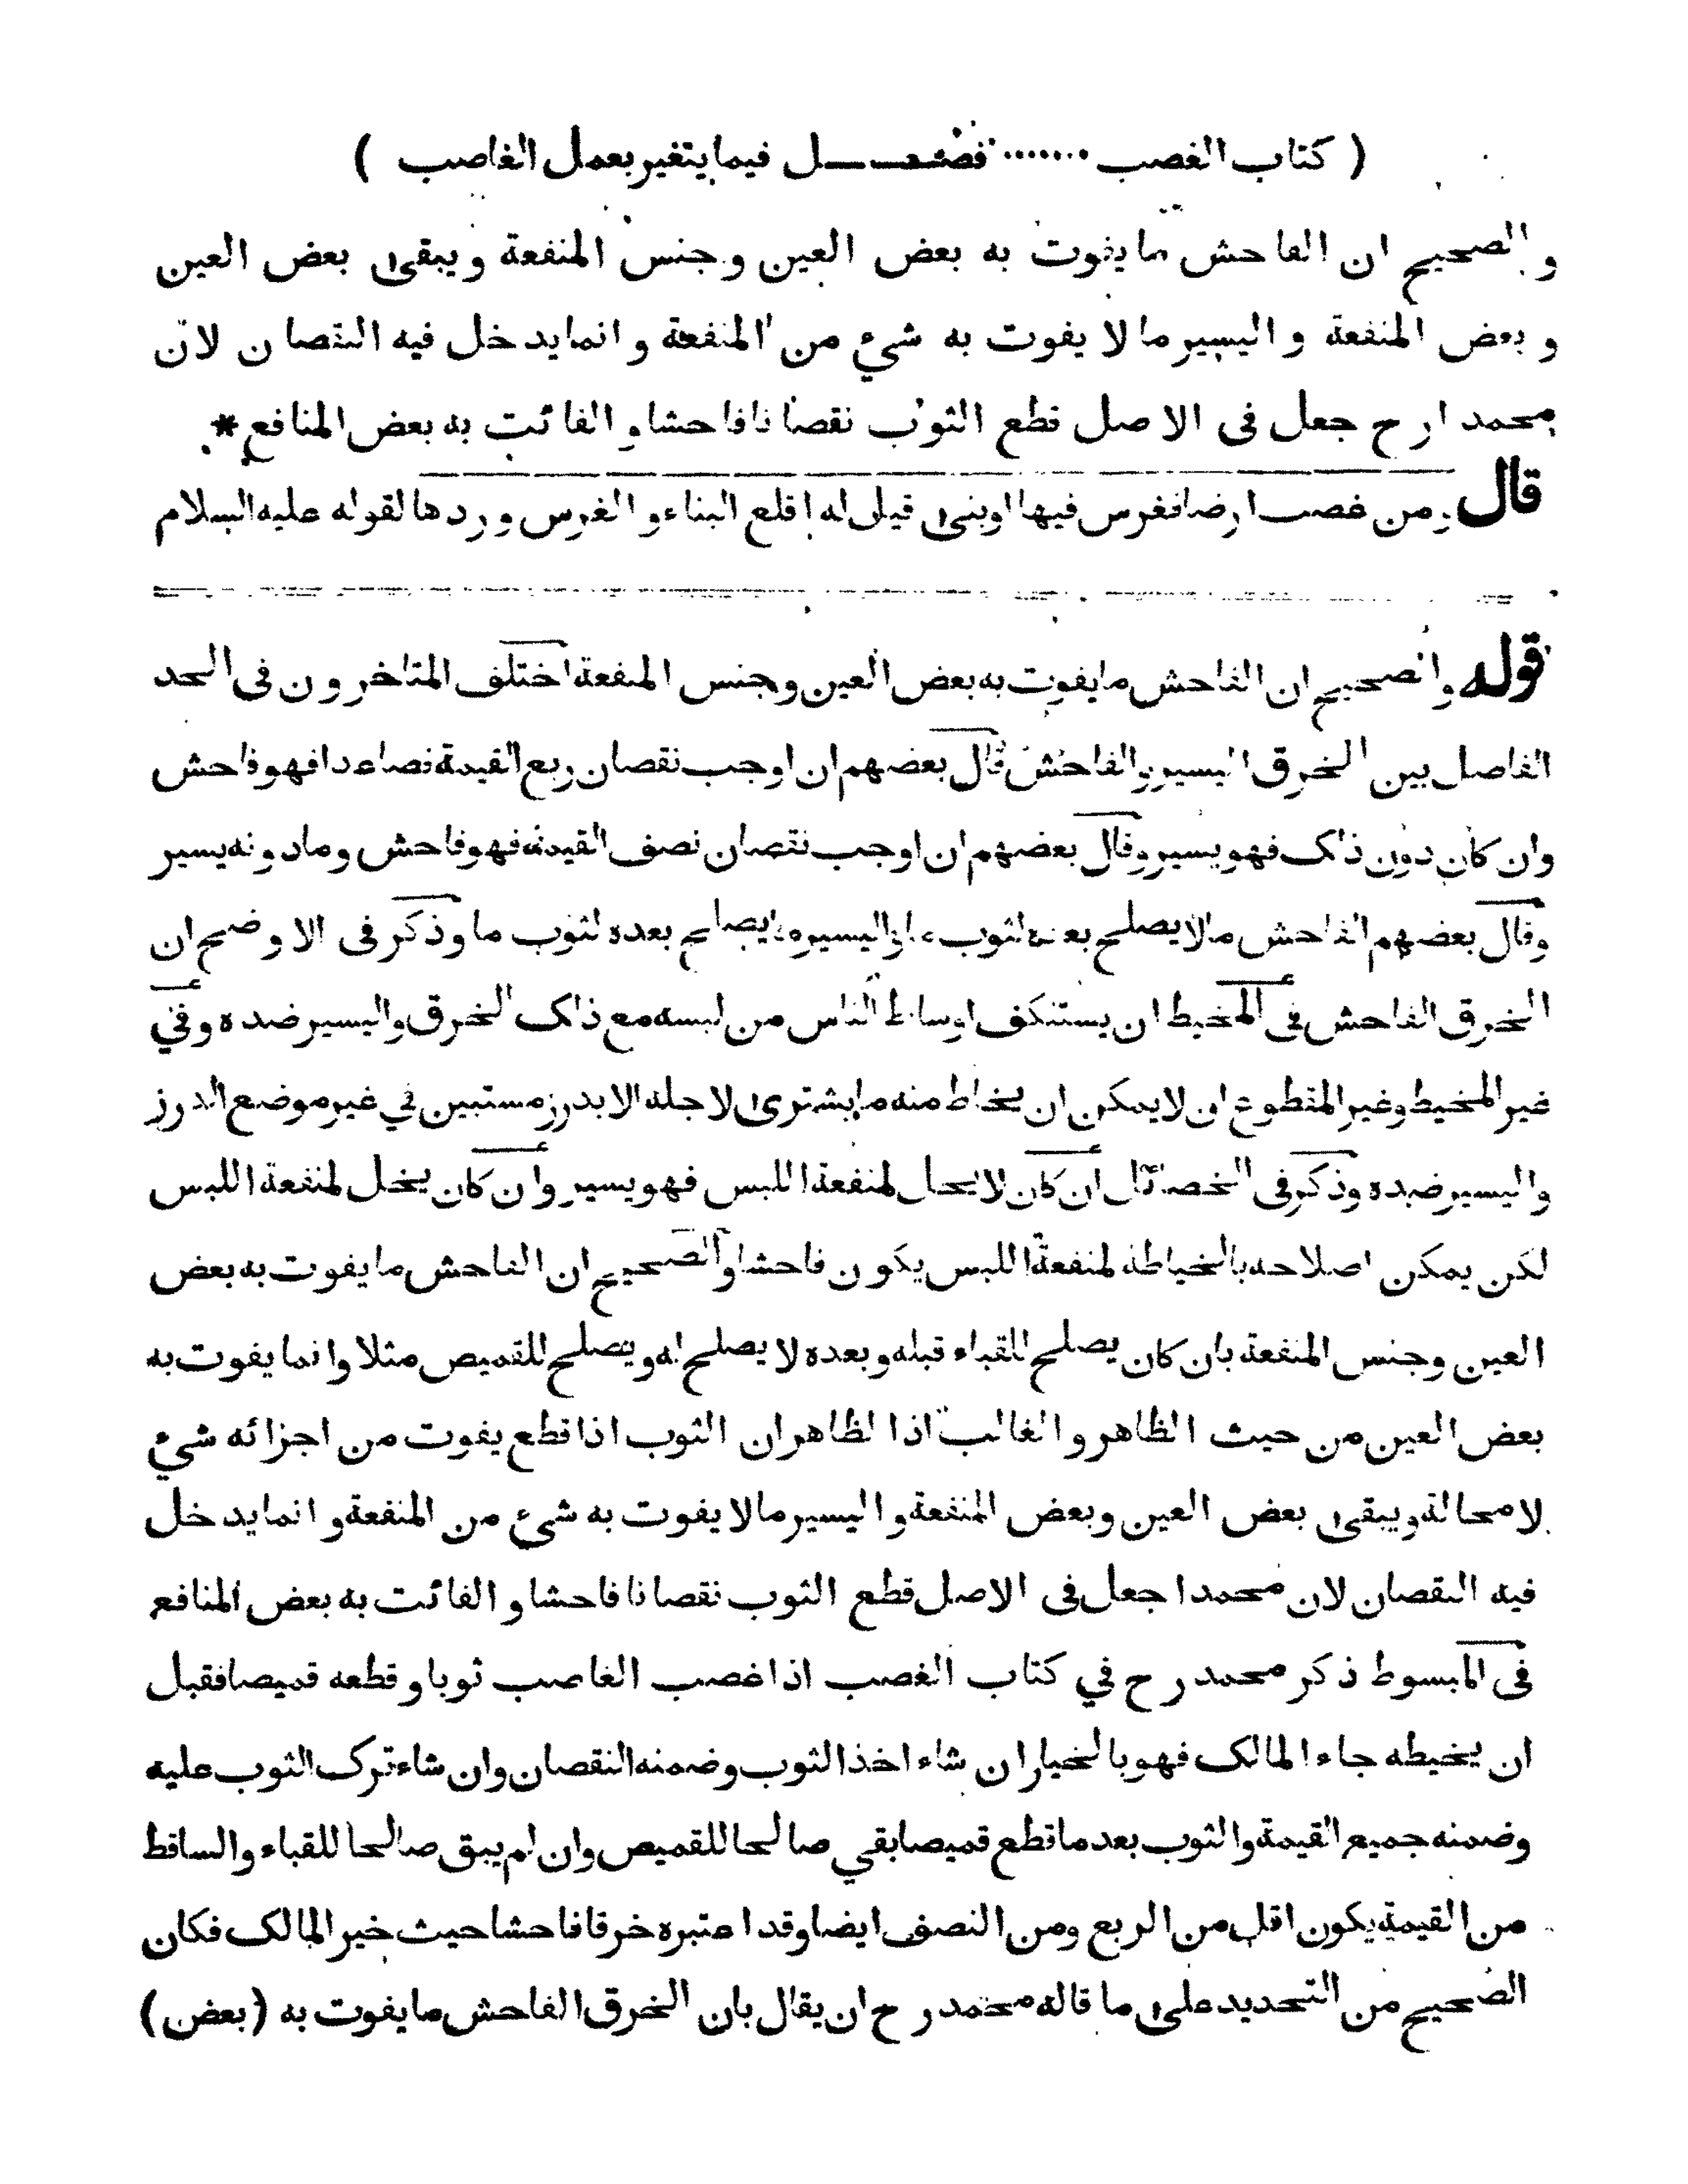 ( كتاب الغصب ....... فصـــل فيما يتغير بعمل الغاصب )
والصحيح ان الفاحش ما يفوت به بعض العين وجنس المنفعة ويبقى بعض العين
وبعض المنفعة واليسير ما لا يفوت به شيء من المنفعة وانما يدخل فيه النقصان لان
محمدا رح جعل فى الاصل قطع الثوب نقصانا فاحشا والفائت به بعض المنافع *
قال ومن غصب ارضا فغرس فيها او بنى قيل له اقلع البناء والغرس وردها لقوله عليه السلام
قوله والصحيح ان الفاحش ما يفوت به بعض العين وجنس المنفعة اختلف المتاخرون فى الحد
الفاصل بين الخرق اليسير والفاحش قال بعضهم ان اوجب نقصان ربع القيمة فصاعدا فهو فاحش
وان كان دون ذلك فهو يسير وقال بعضهم ان اوجب نقصان نصف القيمة فهو فاحش وما دونه يسير
وقال بعضهم الفاحش ما لا يصلح بعده لثوب ما واليسير ما يصلح بعده لثوب ما وذكر فى الاوضح ان
الخرق الفاحش فى المخيط ان يستنكف اوساط الناس من لبسه مع ذلك الخرق واليسير ضده وفي
غير المخيط وغير المقطوع ان لا يمكن ان يخاط منه ما يشترى لاجله الا بدرز مستبين في غير موضع الدرز
واليسير ضده وذكر فى الخصائل ان كان لا يخل لمنفعة اللبس فهو يسير وان كان يخل لمنفعة اللبس
لكن يمكن اصلاحه بالخياطة لمنفعة اللبس يكون فاحشا والصحيح ان الفاحش ما يفوت به بعض
العين وجنس المنفعة بان كان يصلح للقباء قبله وبعده لا يصلح له ويصلح للقميص مثلا وانما يفوت به
بعض العين من حيث الظاهر والغالب اذا لظاهر ان الثوب اذا قطع يفوت من اجزائه شيء
لا محالة ويبقى بعض العين وبعض المنفعة واليسير ما لا يفوت به شيء من المنفعة وانما يدخل
فيه النقصان لان محمدا جعل فى الاصل قطع الثوب نقصانا فاحشا والفائت به بعض المنافع
فى المبسوط ذكر محمد رح في كتاب الغصب اذا غصب الغاصب ثوبا وقطعه قميصا فقبل
ان يخيطه جاء المالك فهو بالخيار ان شاء اخذ الثوب وضمنه النقصان وان شاء ترك الثوب عليه
وضمنه جميع القيمة والثوب بعد ما قطع قميصا بقي صالحا للقميص وان لم يبق صالحا للقباء والساقط
من القيمة يكون اقل من الربع ومن النصف ايضا وقد اعتبره خرقا فاحشا حيث خير المالك فكان
الصحيح من التحديد على ما قاله محمد رح ان يقال بان الخرق الفاحش ما يفوت به (بعض)